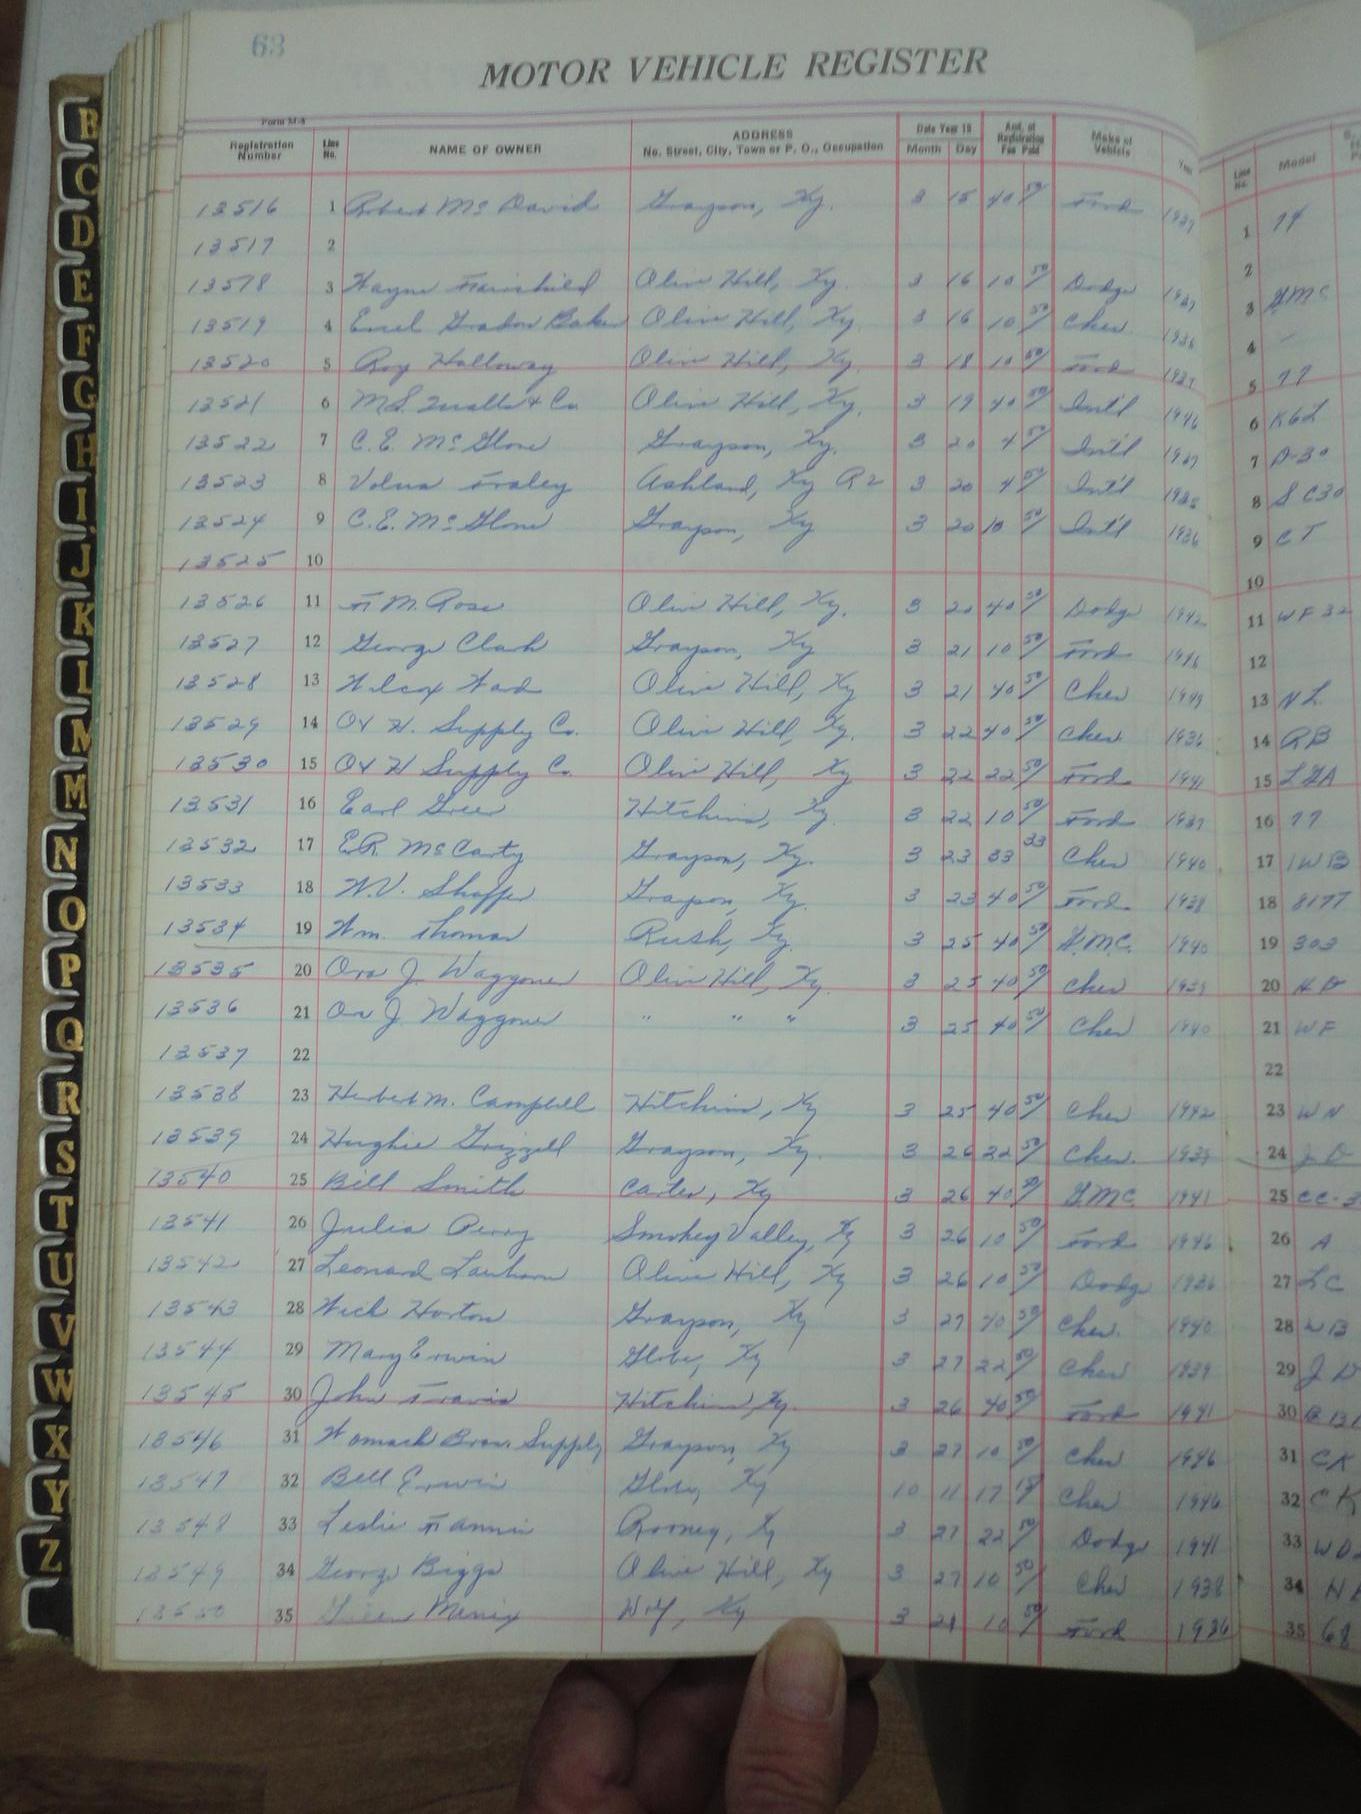 63
MOTOR VEHICLE REGISTER
Form M-8
Registration Number Line No. NAME OF OWNER ADDRESS No. Street, City, Town or P. O., Occupation Date Year 19 Month Day Amt. of Registration Fee Paid Make of Vehicle Year Line No. Model
13516 1 Robert McDavid Grayson, Ky. 3 15 40 50 Ford 1937 1 74
13517 2 2
13518 3 Wayne Fairchild Olive Hill, Ky. 3 16 10 50 Dodge 1937 3
13519 4 Baker Olive Hill, Ky. 3 16 10 50 Chev. 1936 4 -
13520 5 Roy Holloway Olive Hill, Ky. 3 18 10 50 Ford 1937 5 77
13521 6 M.S. & Co. Olive Hill, Ky. 3 19 40 50 Int'l 1946 6
13522 7 C.E. McGlone Grayson, Ky. 3 20 4 50 Int'l 1937 7 D-30
13523 8 Fraley Ashland, Ky R2 3 20 4 50 Int'l 1935 8 S C30
13524 9 C.E. McGlone Grayson, Ky 3 20 10 50 Int'l 1936 9 CT
13525 10 10
13526 11 M. Rose Olive Hill, Ky. 3 20 40 50 Dodge 1942 11 WF32
13527 12 George Clark Grayson, Ky 3 21 10 50 Ford 1946 12
13528 13 Wilcox Ward Olive Hill, Ky 3 21 40 50 Chev 1949 13 NL
13529 14 O & H. Supply Co. Olive Hill, Ky. 3 22 40 50 Chev 1936 14 RB
13530 15 O & H Supply Co. Olive Hill, Ky 3 22 22 50 Ford 1941 15
13531 16 Earl Greer Hitchins, Ky. 3 22 10 50 Ford 1937 16 77
13532 17 E.R. McCarty Grayson, Ky. 3 23 33 33 Chev 1940 17 1WB
13533 18 W.V. Shaffer Grayson, Ky. 3 23 40 50 Ford 1938 18 817T
13534 19 Wm. Thomas Rush, Ky. 3 25 40 50 G.M.C. 1940 19 303
13535 20 Ora J. Waggoner Olive Hill, Ky. 3 25 40 50 Chev 1939 20
13536 21 Ora J. Waggoner " " " 3 25 40 50 Chev 1940 21 WF
13537 22 22
13538 23 Herbert M. Campbell Hitchins, Ky 3 25 40 50 Chev 1942 23 WN
13539 24 Hughie Grizzell Grayson, Ky. 3 26 22 50 Chev. 1939 24 JD
13540 25 Bill Smith Carter, Ky 3 26 40 50 G.M.C. 1941 25 CC-3
13541 26 Julia Perry Smokey Valley, Ky 3 26 10 50 Ford 1946 26 A
13542 27 Leonard Lanham Olive Hill, Ky 3 26 10 50 Dodge 1936 27 LC
13543 28 Horton Grayson, Ky 3 27 40 50 Chev. 1940 28 WB
13544 29 Mary Erwin Globe, Ky 3 27 22 50 Chev 1939 29 JD
13545 30 John Travis Hitchins, Ky. 3 26 40 50 Ford 1941 30
13546 31 Womack Bros. Supply Grayson, Ky 3 27 10 50 Chev 1946 31 CK
13547 32 Bell Erwin Globe, Ky 10 11 17 Chev 1946 32 CK
13548 33 Leslie Fannin Rooney, Ky 3 27 22 50 Dodge 1941 33
13549 34 George Biggs Olive Hill, Ky 3 27 10 50 Chev 1938 34
13550 35 Ky 3 10 50 Ford 1936 35 68
B
C
D
E
F
G
H
I
J
K
L
M
M
N
O
P
Q
R
S
T
U
V
W
X
Y
Z